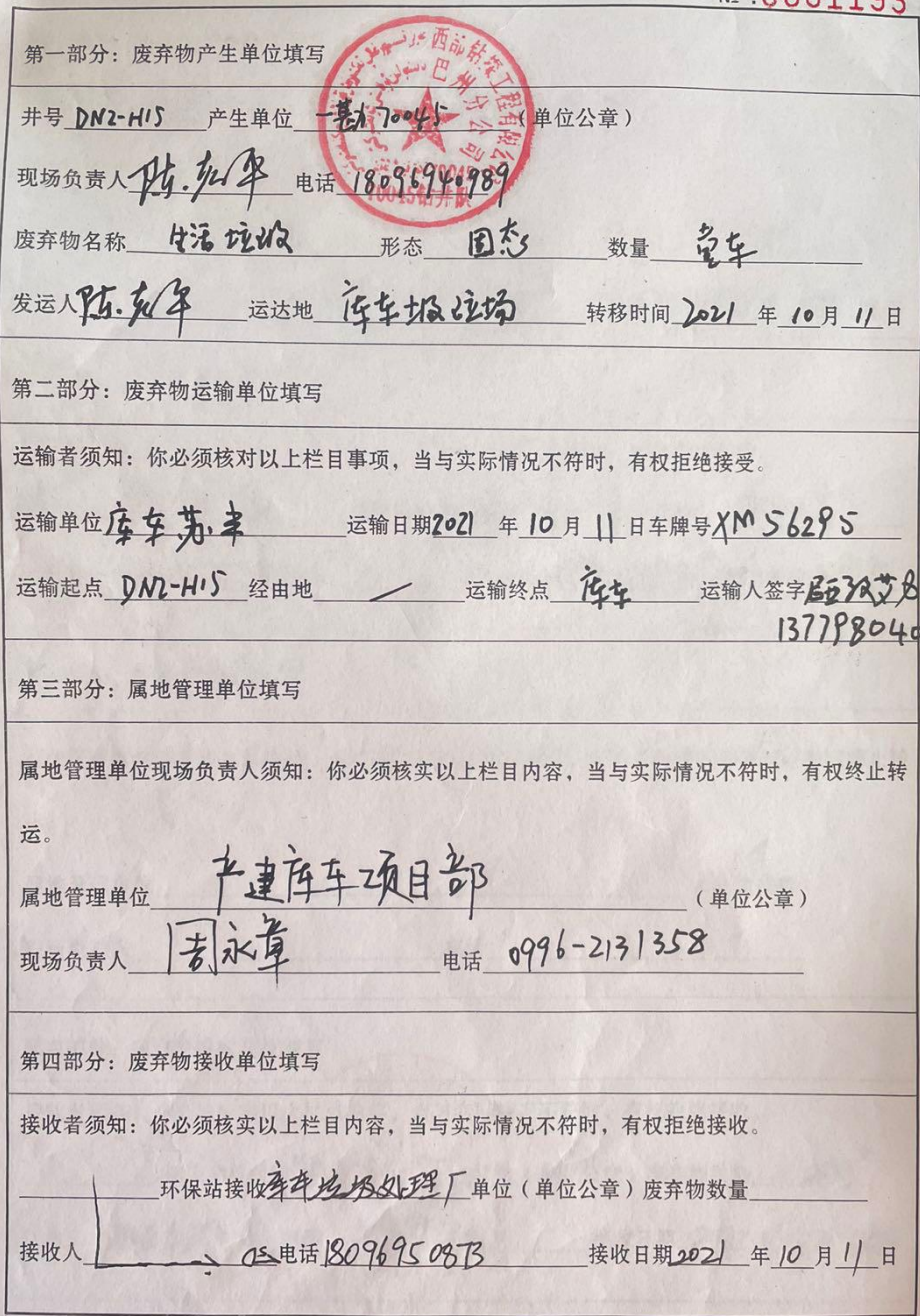 第一部分：废弃物产生单位填写
井号 DN2-H15 产生单位 一勘70045 （单位公章）
西部钻探工程有限公司
巴州分公司
70045钻井队
现场负责人 陈 电话 18096940989
废弃物名称 生活垃圾 形态 固态 数量 壹车
发运人 陈 运达地 库车垃圾场 转移时间 2021 年 10 月 11 日
第二部分：废弃物运输单位填写
运输者须知：你必须核对以上栏目事项，当与实际情况不符时，有权拒绝接受。
运输单位 库车 运输日期 2021 年 10 月 11 日 车牌号 XM56295
运输起点 DN2-H15 经由地 / 运输终点 库车 运输人签字
137798040
第三部分：属地管理单位填写
属地管理单位现场负责人须知：你必须核实以上栏目内容，当与实际情况不符时，有权终止转
运。
属地管理单位 产建库车项目部 （单位公章）
现场负责人 周永章 电话 0996-2131358
第四部分：废弃物接收单位填写
接收者须知：你必须核实以上栏目内容，当与实际情况不符时，有权拒绝接收。
环保站接收 库车垃圾处理厂 单位（单位公章）废弃物数量
接收人 电话 180969508 接收日期 2021 年 10 月 11 日